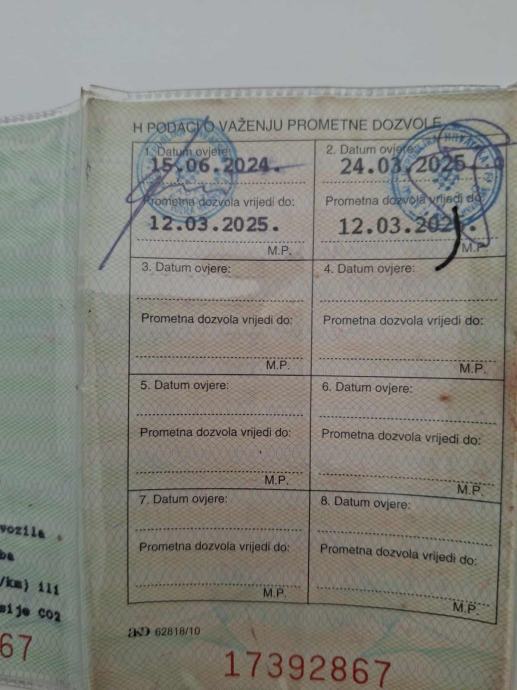 H PODACI O VAŽENJU PROMETNE DOZVOLE
1. Datum ovjere:
15.06.2024.
Prometna dozvola vrijedi do:
12.03.2025.
M.P.
2. Datum ovjere:
24.03.2025
Prometna dozvola vrijedi do:
12.03.202
M.P.
3. Datum ovjere:
Prometna dozvola vrijedi do:
M.P.
4. Datum ovjere:
Prometna dozvola vrijedi do:
M.P.
5. Datum ovjere:
Prometna dozvola vrijedi do:
M.P.
6. Datum ovjere:
Prometna dozvola vrijedi do:
M.P.
7. Datum ovjere:
Prometna dozvola vrijedi do:
M.P.
8. Datum ovjere:
Prometna dozvola vrijedi do:
M.P.
vozila
ba
/km) ili
sije CO2
67
AKD 62818/10
17392867